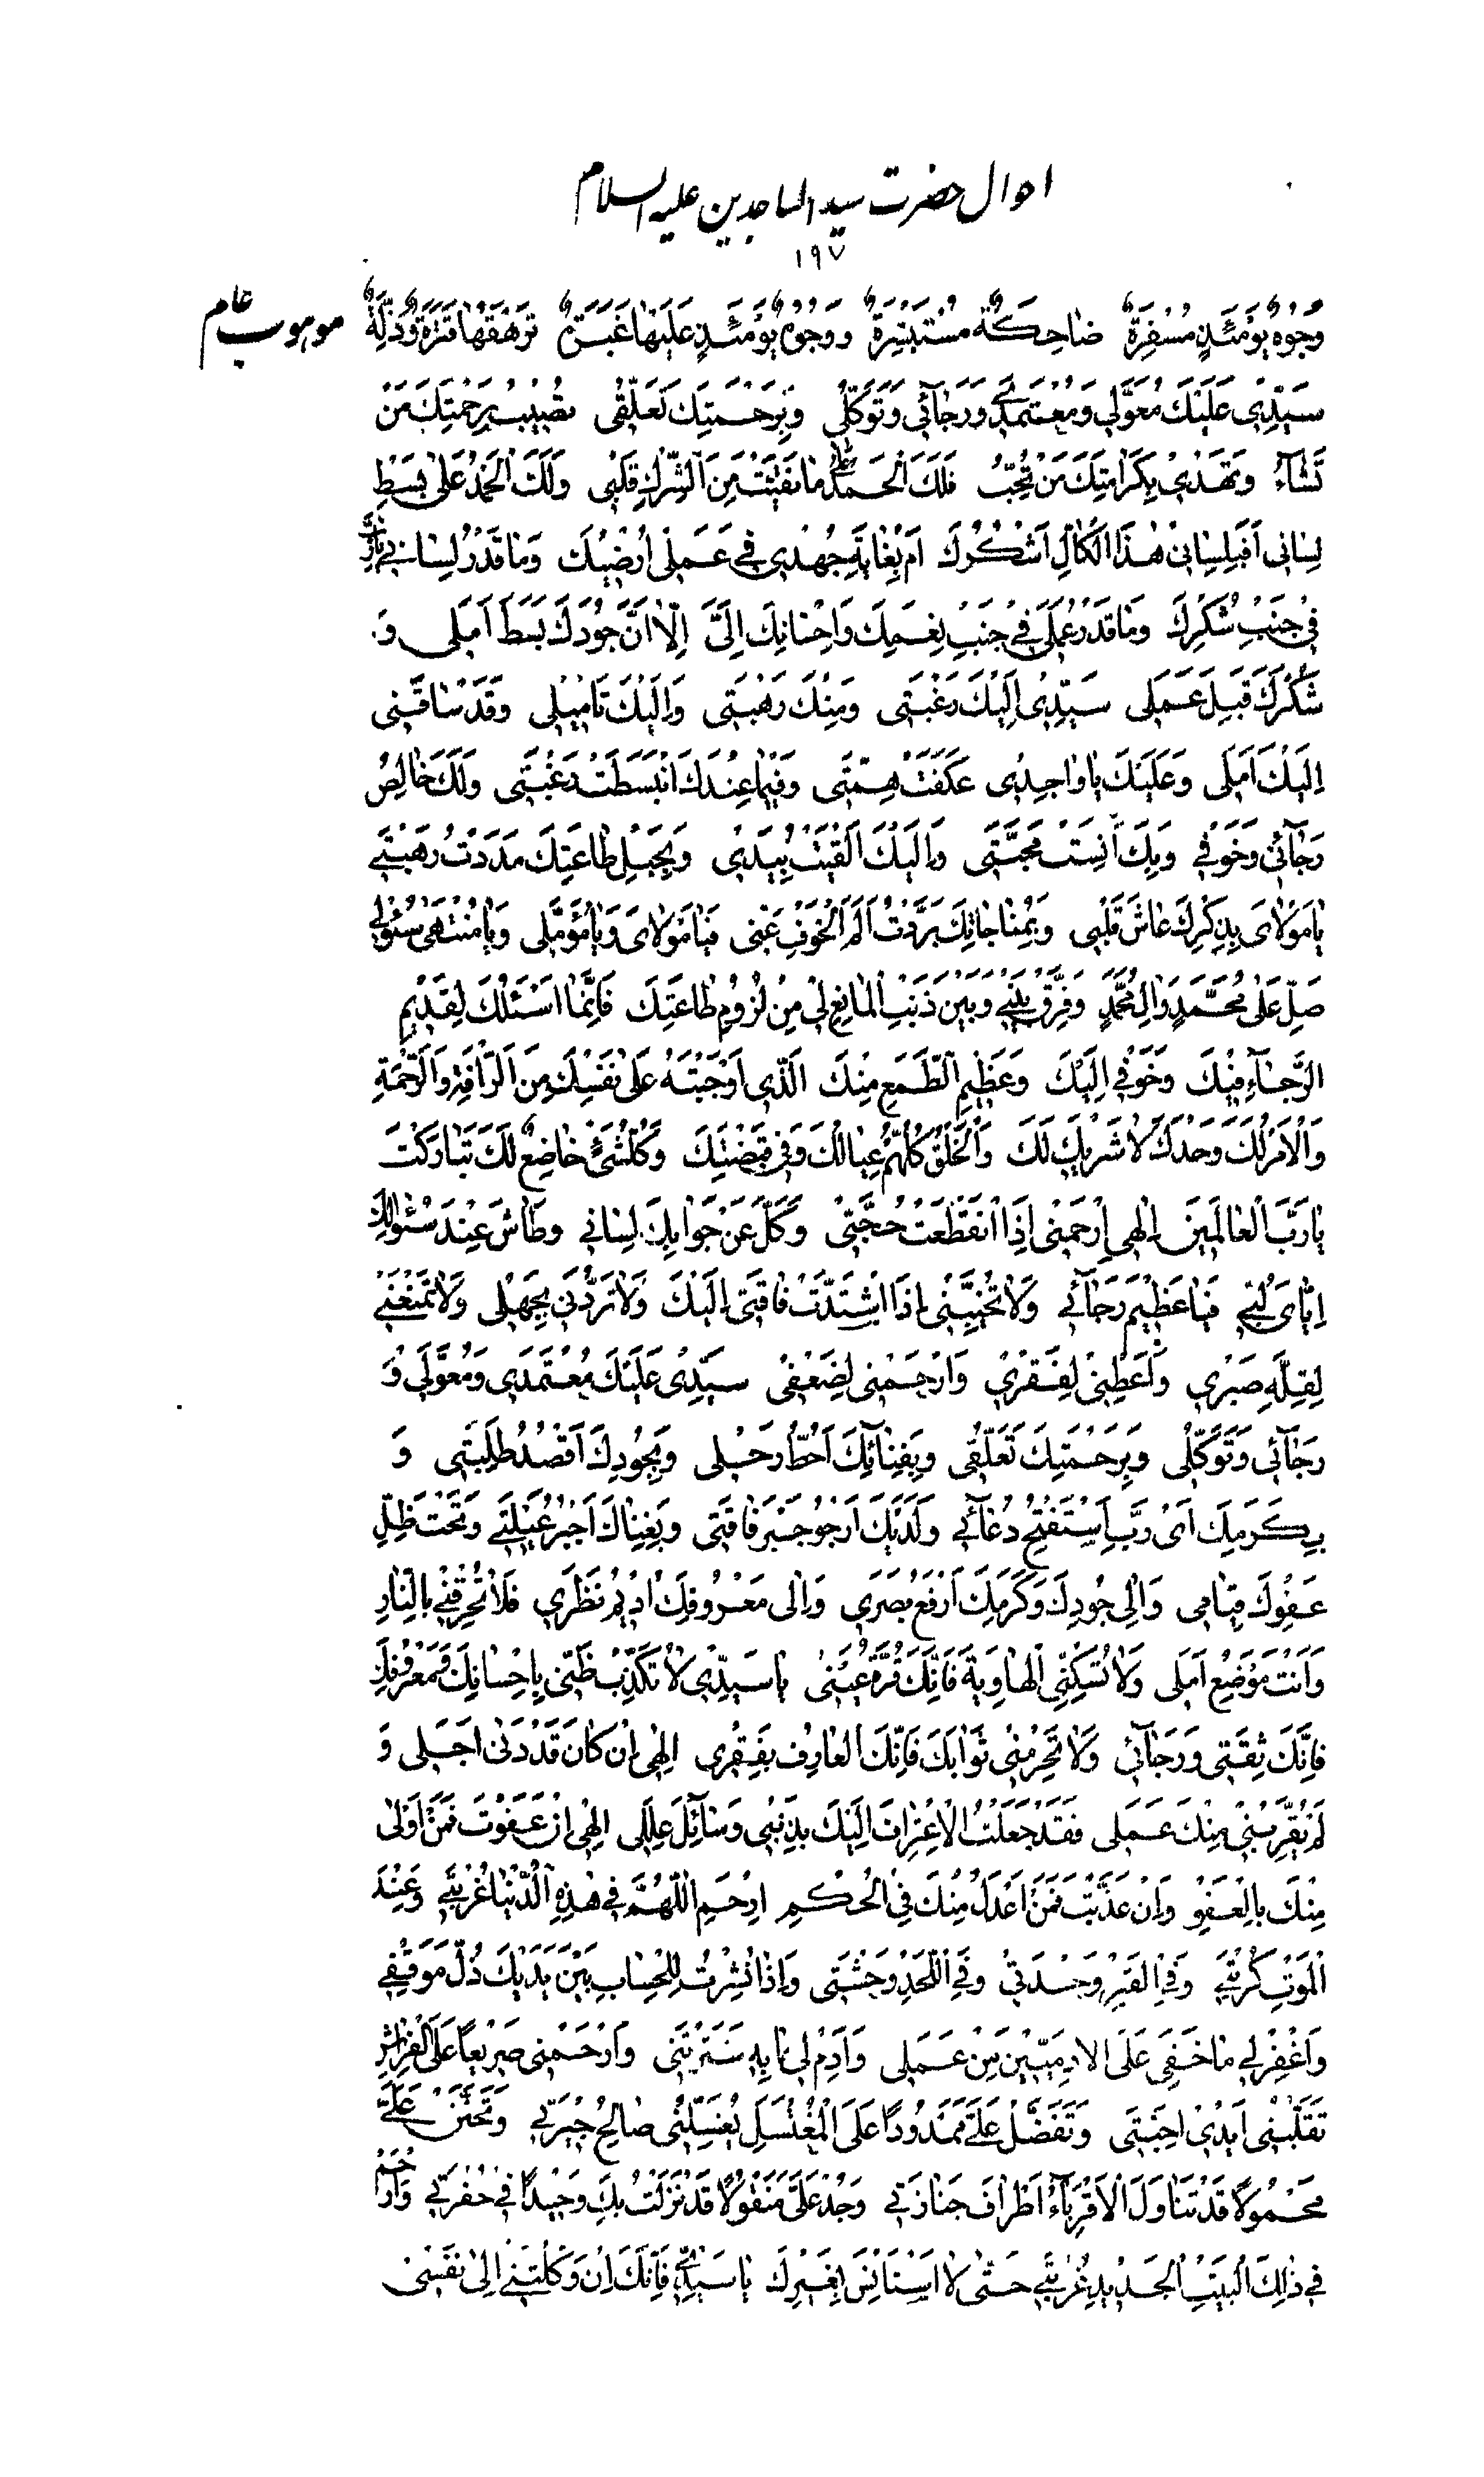 احوال حضرت سید الساجدین علیه السلام
۱۹۷
موهوب عام
وُجُوهٌ يَوْمَئِذٍ مُسْفِرَةٌ ضَاحِكَةٌ مُسْتَبْشِرَةٌ وَوُجُوهٌ يَوْمَئِذٍ عَلَيْهَا غَبَرَةٌ تَرْهَقُهَا قَتَرَةٌ وَذِلَّةٌ
سَيِّدِي عَلَيْكَ مُعَوَّلِي وَمُعْتَمَدِي وَرَجَآئِي وَتَوَكُّلِي وَبِرَحْمَتِكَ تَعَلُّقِي تُصِيبُ بِرَحْمَتِكَ مَنْ
تَشَآءُ وَتَهْدِي بِكَرَامَتِكَ مَنْ تُحِبُّ فَلَكَ الْحَمْدُ عَلَى مَا نَقَّيْتَ مِنَ الشِّرْكِ قَلْبِي وَلَكَ الْحَمْدُ عَلَى بَسْطِ
لِسَانِي اَفَبِلِسَانِي هٰذَا الْكَالِّ اَشْكُرُكَ اَمْ بِغَايَةِ جُهْدِي فِي عَمَلِي اُرْضِيكَ وَمَا قَدْرُ لِسَانِي يَا رَبِّ
فِي جَنْبِ شُكْرِكَ وَمَا قَدْرُ عَمَلِي فِي جَنْبِ نِعَمِكَ وَاِحْسَانِكَ اِلَيَّ اِلَّا اَنَّ جُودَكَ بَسَطَ اَمَلِي وَ
شُكْرَكَ قَبِلَ عَمَلِي سَيِّدِي اِلَيْكَ رَغْبَتِي وَمِنْكَ رَهْبَتِي وَاِلَيْكَ تَأمِيلِي وَقَدْ سَاقَنِي
اِلَيْكَ اَمَلِي وَعَلَيْكَ يَا وَاحِدِي عَكَفَتْ هِمَّتِي وَفِيمَا عِنْدَكَ انْبَسَطَتْ رَغْبَتِي وَلَكَ خَالِصُ
رَجَآئِي وَخَوْفِي وَبِكَ اَنِسَتْ مَحَبَّتِي وَاِلَيْكَ اَلْقَيْتُ بِيَدِي وَبِحَبْلِ طَاعَتِكَ مَدَدْتُ رَهْبَتِي
يَا مَوْلَايَ بِذِكْرِكَ عَاشَ قَلْبِي وَبِمُنَاجَاتِكَ بَرَّدْتُ اَلَمَ الْخَوْفِ عَنِّي فَيَا مَوْلَايَ وَيَا مُؤَمَّلِي وَيَا مُنْتَهَى سُؤْلِي
صَلِّ عَلَى مُحَمَّدٍ وَالِ مُحَمَّدٍ وَفَرِّقْ بَيْنِي وَبَيْنَ ذَنْبِيَ الْمَانِعِ لِي مِنْ لُزُومِ طَاعَتِكَ فَاِنَّمَا اَسْئَلُكَ لِقَدِيمِ
الرَّجَآءِ فِيكَ وَخَوْفِي اِلَيْكَ وَعَظِيمِ الطَّمَعِ مِنْكَ الَّذِي اَوْجَبْتَهُ عَلَى نَفْسِكَ مِنَ الرَّأفَةِ وَالرَّحْمَةِ
وَالْاَمْرُ لَكَ وَحْدَكَ لَا شَرِيكَ لَكَ وَالْخَلْقُ كُلُّهُمْ عِيَالُكَ وَفِي قَبْضَتِكَ وَكُلُّ شَيْءٍ خَاضِعٌ لَكَ تَبَارَكْتَ
يَا رَبَّ الْعَالَمِينَ اِلٰهِي اِرْحَمْنِي اِذَا انْقَطَعَتْ حُجَّتِي وَكَلَّ عَنْ جَوَابِكَ لِسَانِي وَطَاشَ عِنْدَ سُئَوالِكَ
اِيَّايَ لُبِّي فَيَا عَظِيمَ رَجَآئِي وَلَا تُخَيِّبْنِي اِذَا اشْتَدَّتْ فَاقَتِي اِلَيْكَ وَلَا تَرُدَّنِي بِجَهْلِي وَلَا تَمْنَعْنِي
لِقِلَّةِ صَبْرِي وَاَعْطِنِي لِفَقْرِي وَارْحَمْنِي لِضَعْفِي سَيِّدِي عَلَيْكَ مُعْتَمَدِي وَمُعَوَّلِي وَ
رَجَآئِي وَتَوَكُّلِي وَبِرَحْمَتِكَ تَعَلُّقِي وَبِفِنَآئِكَ اَحُطُّ رَحْلِي وَبِجُودِكَ اَقْصُدُ طَلِبَتِي وَ
بِكَرَمِكَ اَيْ رَبِّ اَسْتَفْتِحُ دُعَآئِي وَلَدَيْكَ اَرْجُو جَبْرَ فَاقَتِي وَبِغِنَاكَ اَجْبُرُ عَيْلَتِي وَتَحْتَ ظِلِّ
عَفْوِكَ قِيَامِي وَاِلَى جُودِكَ وَكَرَمِكَ اَرْفَعُ بَصَرِي وَاِلَى مَعْرُوفِكَ اُدِيمُ نَظَرِي فَلَا تُحْرِقْنِي بِالنَّارِ
وَاَنْتَ مَوْضِعُ اَمَلِي وَلَا تُسْكِنِّي الْهَاوِيَةَ فَاِنَّكَ قُرَّةُ عَيْنِي يَا سَيِّدِي لَا تُكَذِّبْ ظَنِّي بِاِحْسَانِكَ وَمَعْرُوفِكَ
فَاِنَّكَ ثِقَتِي وَرَجَآئِي وَلَا تَحْرِمْنِي ثَوَابَكَ فَاِنَّكَ الْعَارِفُ بِفَقْرِي اِلٰهِي اِنْ كَانَ قَدْ دَنَى اَجَلِي وَ
لَمْ يُقَرِّبْنِي مِنْكَ عَمَلِي فَقَدْ جَعَلْتُ الْاِعْتِرَافَ اِلَيْكَ بِذَنْبِي وَسَآئِلَ عِلَلِي اِلٰهِي اِنْ عَفَوْتَ فَمَنْ اَوْلَى
مِنْكَ بِالْعَفْوِ وَاِنْ عَذَّبْتَ فَمَنْ اَعْدَلُ مِنْكَ فِي الْحُكْمِ اِرْحَمِ اللّٰهُمَّ فِي هٰذِهِ الدُّنْيَا غُرْبَتِي وَعِنْدَ
الْمَوْتِ كُرْبَتِي وَفِي الْقَبْرِ وَحْدَتِي وَفِي اللَّحْدِ وَحْشَتِي وَاِذَا نُشِرْتُ لِلْحِسَابِ بَيْنَ يَدَيْكَ ذُلَّ مَوْقِفِي
وَاغْفِرْ لِي مَا خَفِيَ عَلَى الْادَمِيِّينَ مِنْ عَمَلِي وَاَدِمْ لِي مَا بِهِ سَتَرْتَنِي وَارْحَمْنِي صَرِيعًا عَلَى الْفِرَاشِ
تُقَلِّبُنِي اَيْدِي اَحِبَّتِي وَتَفَضَّلْ عَلَيَّ مَمْدُودًا عَلَى الْمُغْتَسَلِ يُغَسِّلُنِي صَالِحُ جِيرَتِي وَتَحَنَّنْ عَلَيَّ
مَحْمُولًا قَدْ تَنَاوَلَ الْاَقْرِبَآءُ اَطْرَافَ جَنَازَتِي وَجُدْ عَلَيَّ مَنْقُولًا قَدْ نَزَلْتُ بِكَ وَحِيدًا فِي حُفْرَتِي وَارْحَمْ
فِي ذٰلِكَ الْبَيْتِ الْجَدِيدِ غُرْبَتِي حَتّٰى لَا اَسْتَأنِسَ بِغَيْرِكَ يَا سَيِّدِي فَاِنَّكَ اِنْ وَكَلْتَنِي اِلَى نَفْسِي